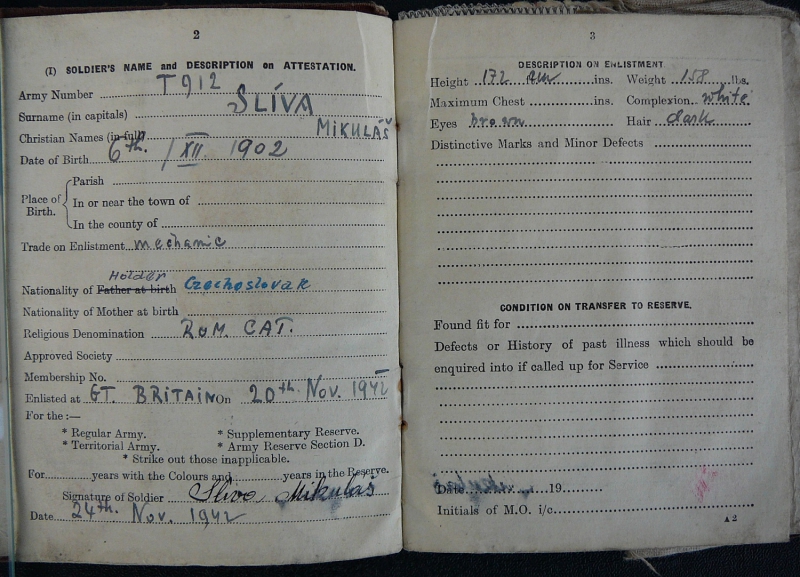 2
(I) SOLDIER'S NAME and DESCRIPTION on ATTESTATION.
Army Number T912
Surname (in capitals) SLÍVA
Christian Names (in full) MIKULÁŠ
Date of Birth 6th. / XII. 1902
Place of Birth.
Parish
In or near the town of
In the county of
Trade on Enlistment mechanic
Holder
Nationality of Father at birth Czechoslovak
Nationality of Mother at birth
Religious Denomination ROM. CAT.
Approved Society
Membership No.
Enlisted at GT. BRITAIN On 20th. Nov. 1942
For the :—
* Regular Army. * Supplementary Reserve.
* Territorial Army. * Army Reserve Section D.
* Strike out those inapplicable.
For years with the Colours and years in the Reserve.
Signature of Soldier Slíva Mikuláš
Date 24th. Nov. 1942
3
DESCRIPTION ON ENLISTMENT
Height 172 cm ins. Weight 158 lbs.
Maximum Chest ins. Complexion white
Eyes brown Hair dark
Distinctive Marks and Minor Defects
CONDITION ON TRANSFER TO RESERVE.
Found fit for
Defects or History of past illness which should be
enquired into if called up for Service
Date 19
Initials of M.O. i/c
A 2